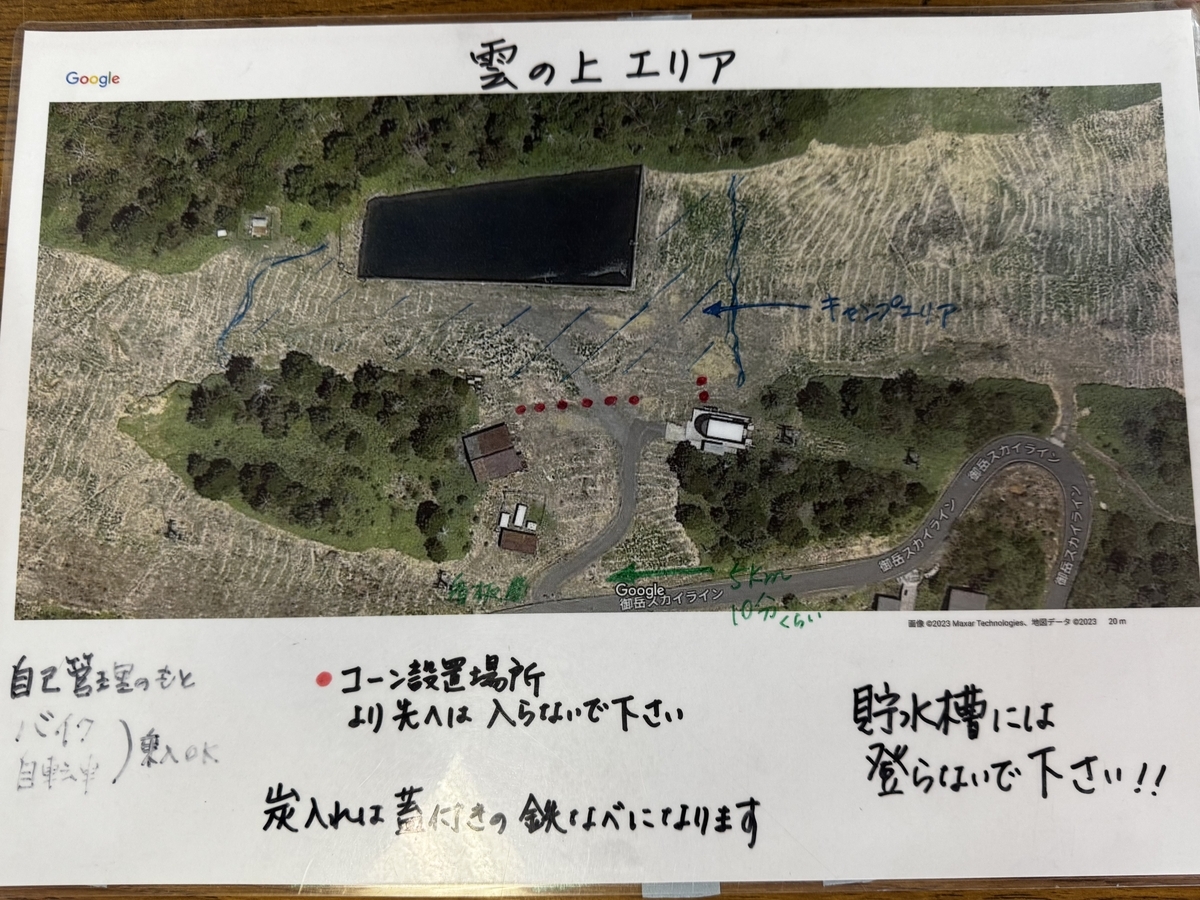 雲の上 エリア
Google
キャンプエリア
御岳スカイライン
御岳スカイライン
御岳スカイライン
Google
御岳スカイライン
5km
10分くらい
画像 ©2023 Maxar Technologies、地図データ ©2023 20 m
自己管理のもと
バイク
自転車
乗入OK
コーン設置場所
より先へは 入らないで下さい
貯水槽には
登らないで下さい!!
炭入れは蓋付きの鉄なべになります